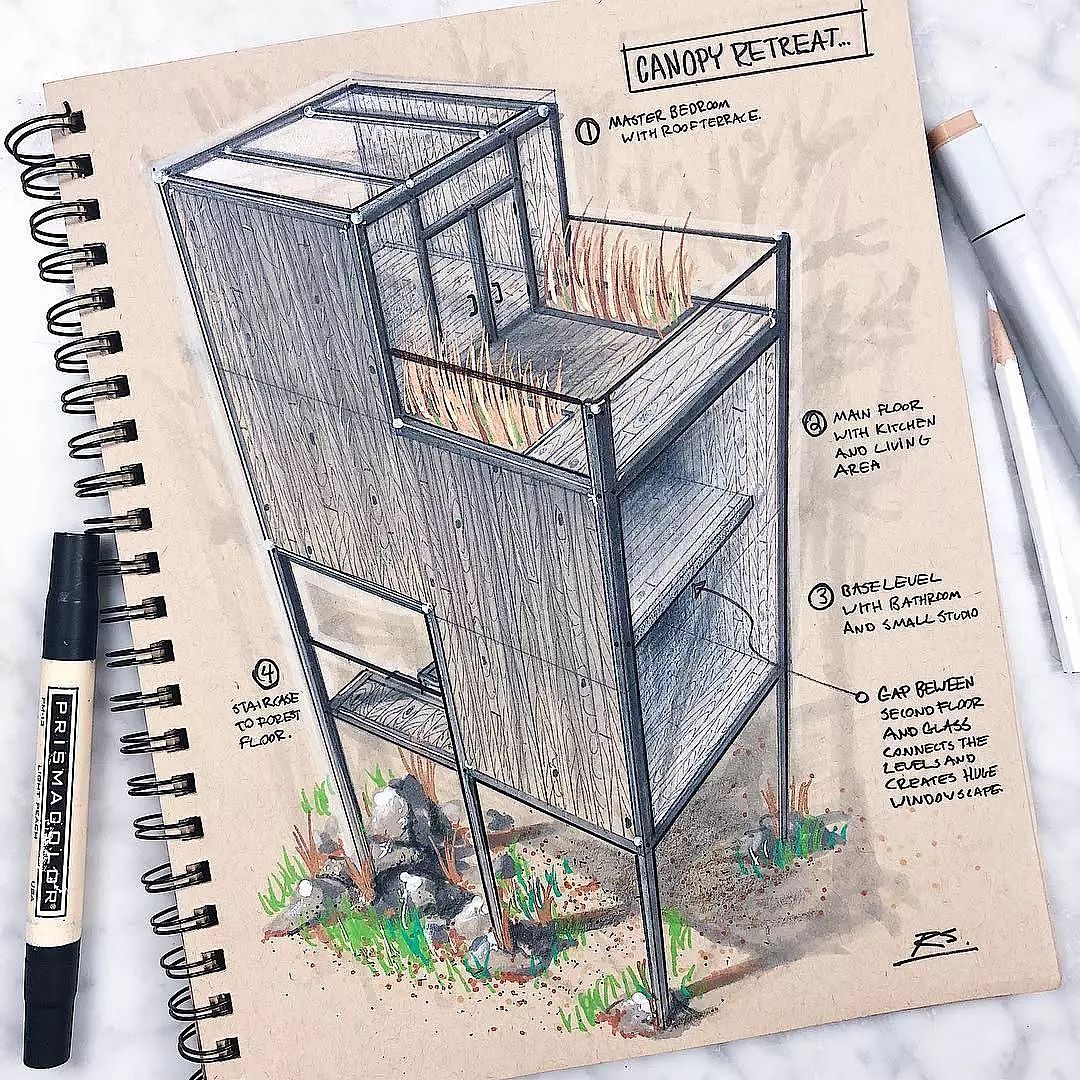 CANOPY RETREAT...
① MASTER BEDROOM
WITH ROOF TERRACE.
② MAIN FLOOR
WITH KITCHEN
AND LIVING
AREA
③ BASE LEVEL
WITH BATHROOM
AND SMALL STUDIO
GAP BEWEEN
SECOND FLOOR
AND GLASS
CONNECTS THE
LEVELS AND
CREATES HUGE
WINDOWSCAPE.
④
STAIRCASE
TO FOREST
FLOOR.
RS.
PRISMACOLOR
LIGHT PEACH
USA